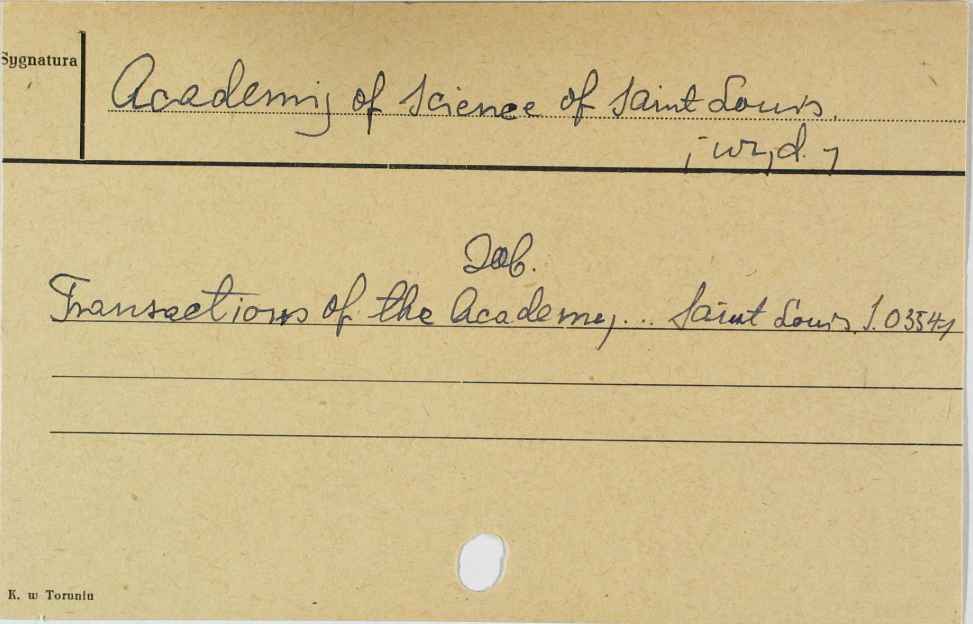 Sygnatura
Academy of Science of Saint Louis.
; wyd. ,
Zob.
Transactions of the Academy... Saint Louis. S.03541
K. w Toruniu